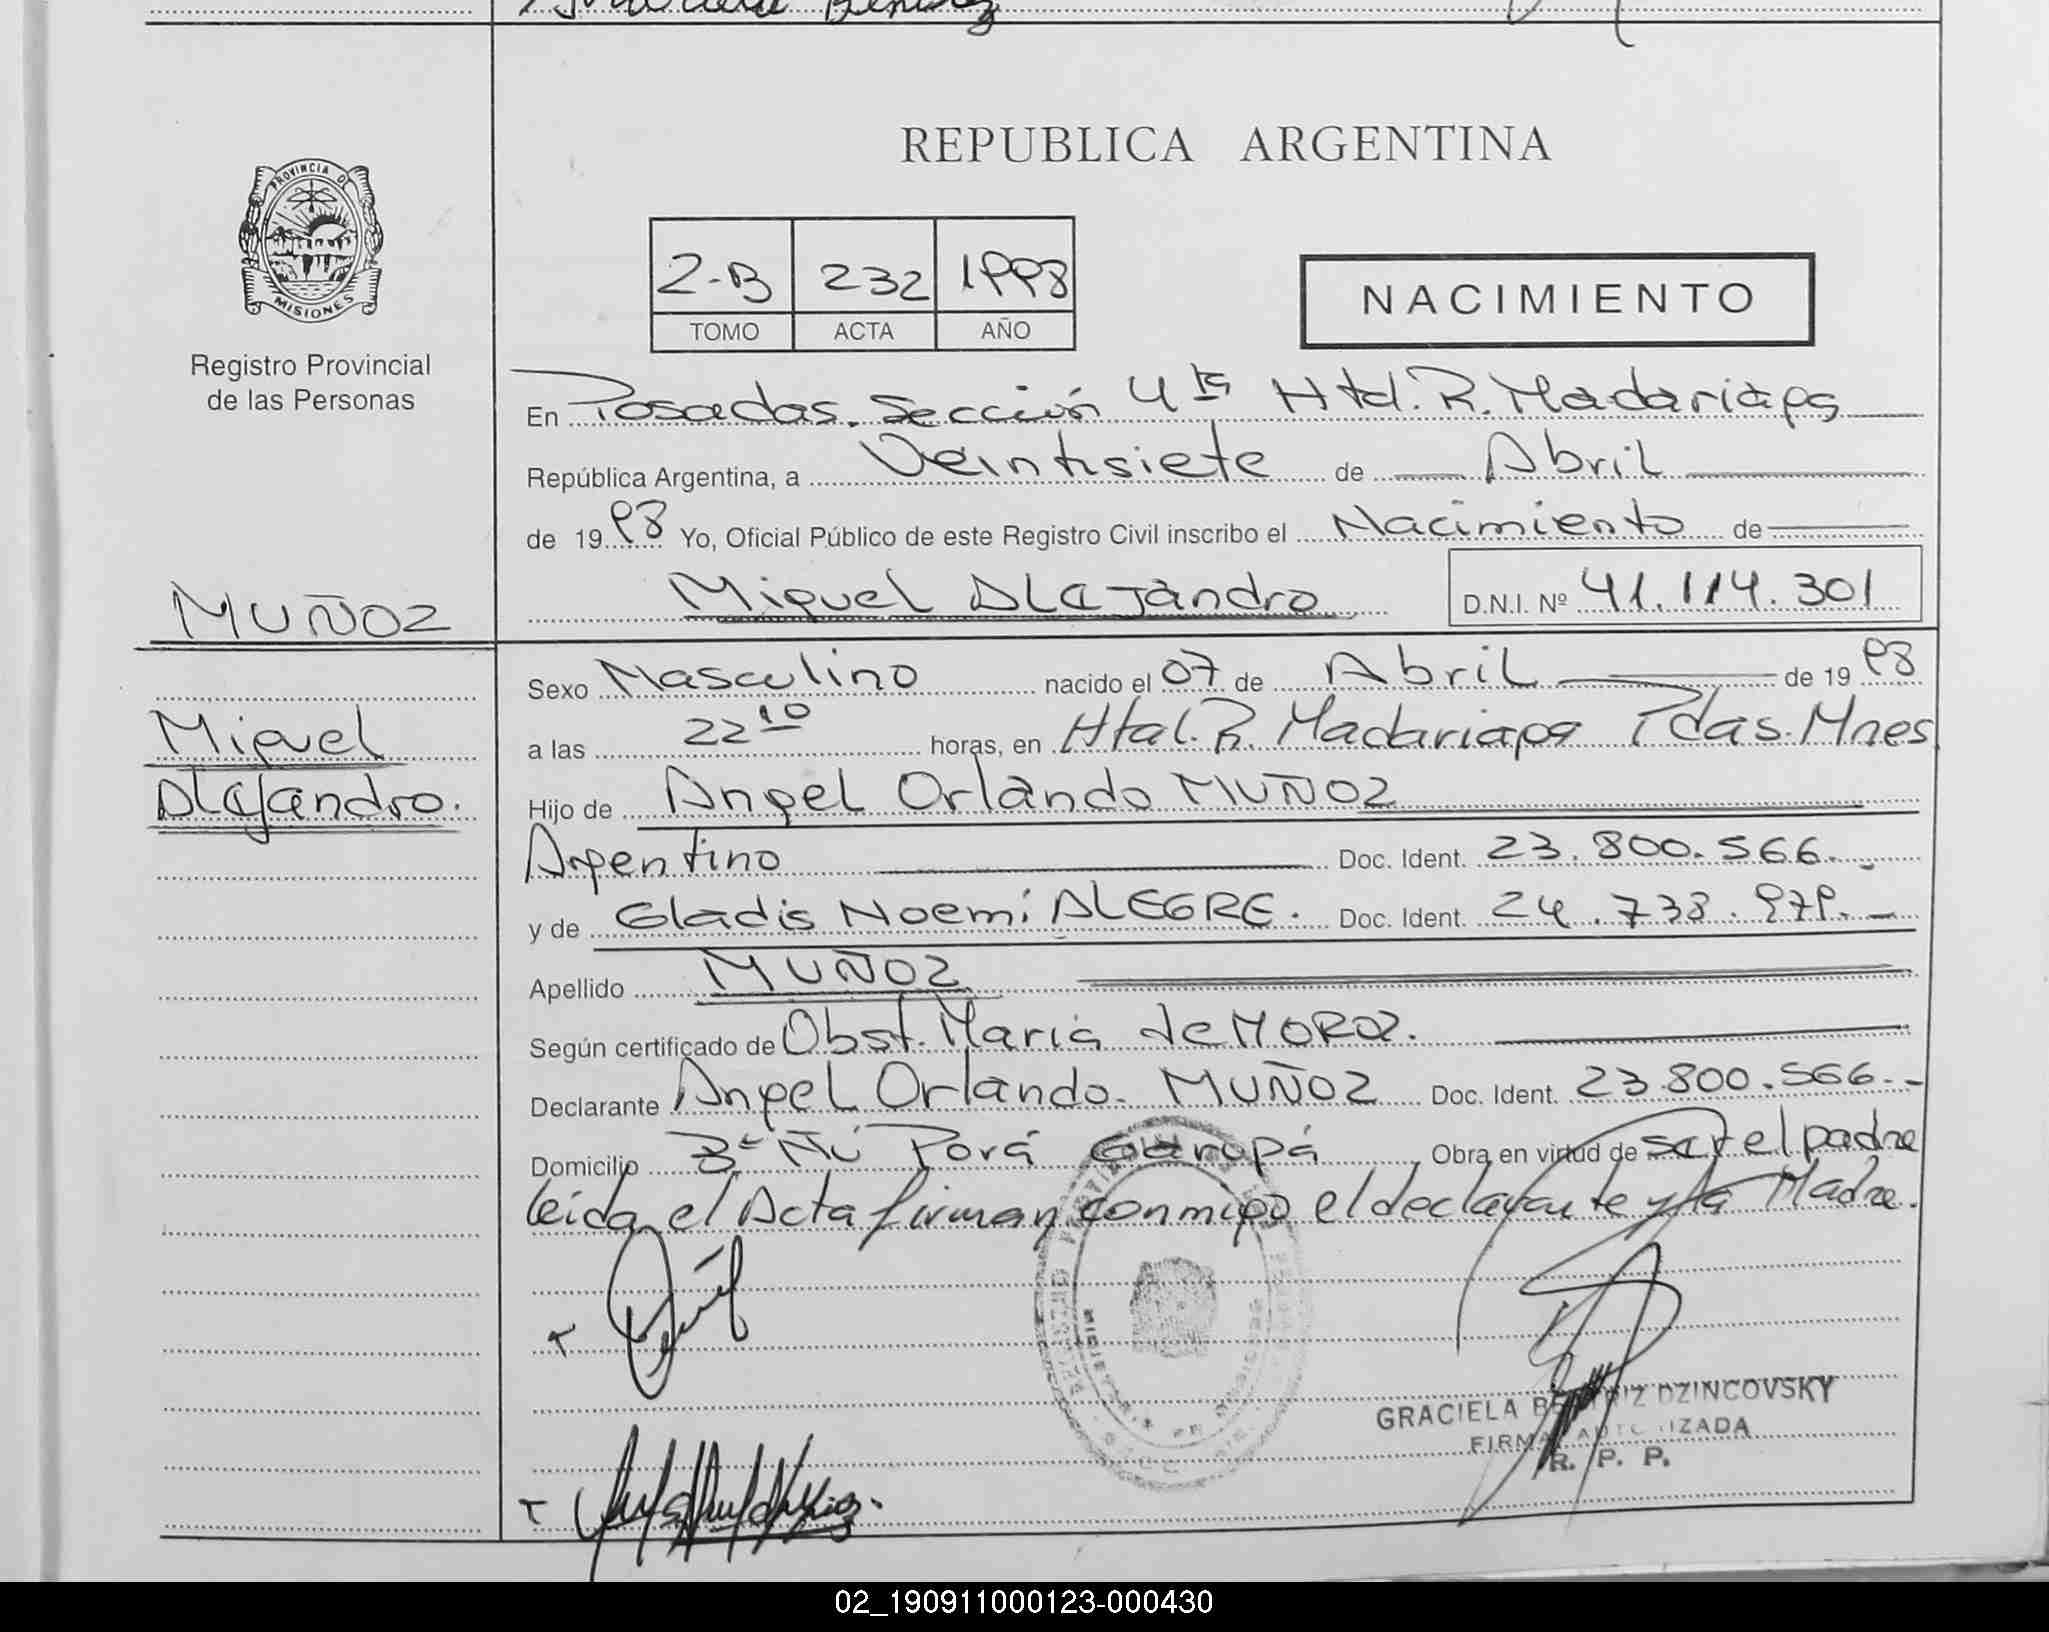 Benitez
PROVINCIA DE
MISIONES
Registro Provincial
de las Personas
MUÑOZ
Miguel
Alejandro.
REPUBLICA ARGENTINA
2-B 232 1998
TOMO ACTA AÑO
NACIMIENTO
En Posadas. Sección 4ta Htal. R. Madariaga
República Argentina, a Veintisiete de Abril
de 1998 Yo, Oficial Público de este Registro Civil inscribo el Nacimiento de
Miguel Alejandro D.N.I. Nº 41.114.301
Sexo Masculino nacido el 07 de Abril de 1998
a las 22 10 horas, en Htal. R. Madariaga Pdas. Mnes
Hijo de Angel Orlando MUÑOZ
Argentino Doc. Ident. 23.800.566.-
y de Gladis Noemi ALEGRE. Doc. Ident. 24.738.979.-
Apellido MUÑOZ
Según certificado de Obst. Maria de MOROZ.
Declarante Angel Orlando. MUÑOZ Doc. Ident. 23.800.566.-
Domicilio Bº Ñú Porá Garupá Obra en virtud de ser el padre
leida el Acta firman conmigo el declarante y la Madre.
GRACIELA BEATRIZ DZINCOVSKY
FIRMA AUTORIZADA
R. P. P.
02_190911000123-000430